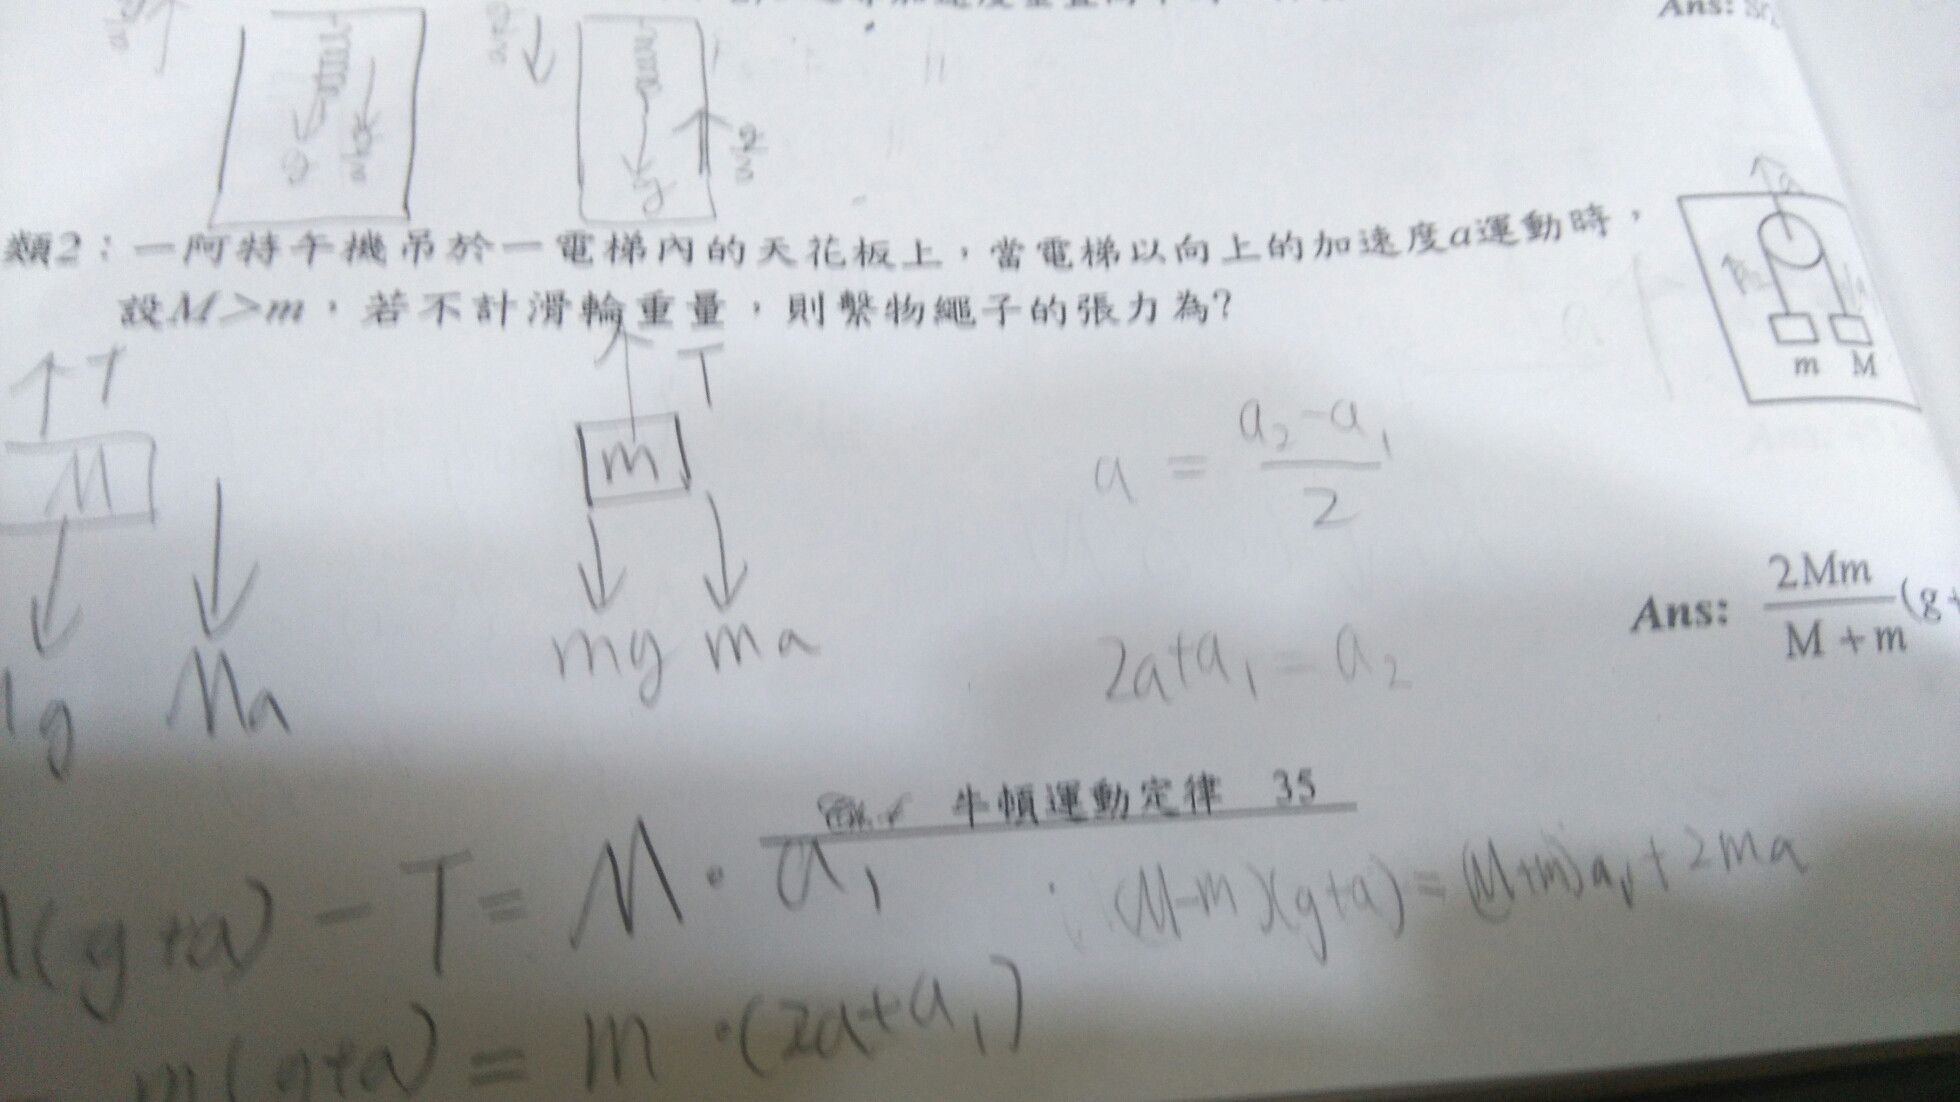 Ans:
g
類2：一阿特午機吊於一電梯內的天花板上，當電梯以向上的加速度a運動時，
設M>m，若不計滑輪重量，則繫物繩子的張力為？
a
m M
T
M
g Ma
T
m
mg ma
a = (a₂-a₁)/2
2a+a₁=a₂
Ans: 2Mm/(M+m) (g+
牛頓運動定律 35
(g+a)-T=M·a₁
(M-m)(g+a)=(M+m)a₁+2ma
m(g+a)=m·(2a+a₁)